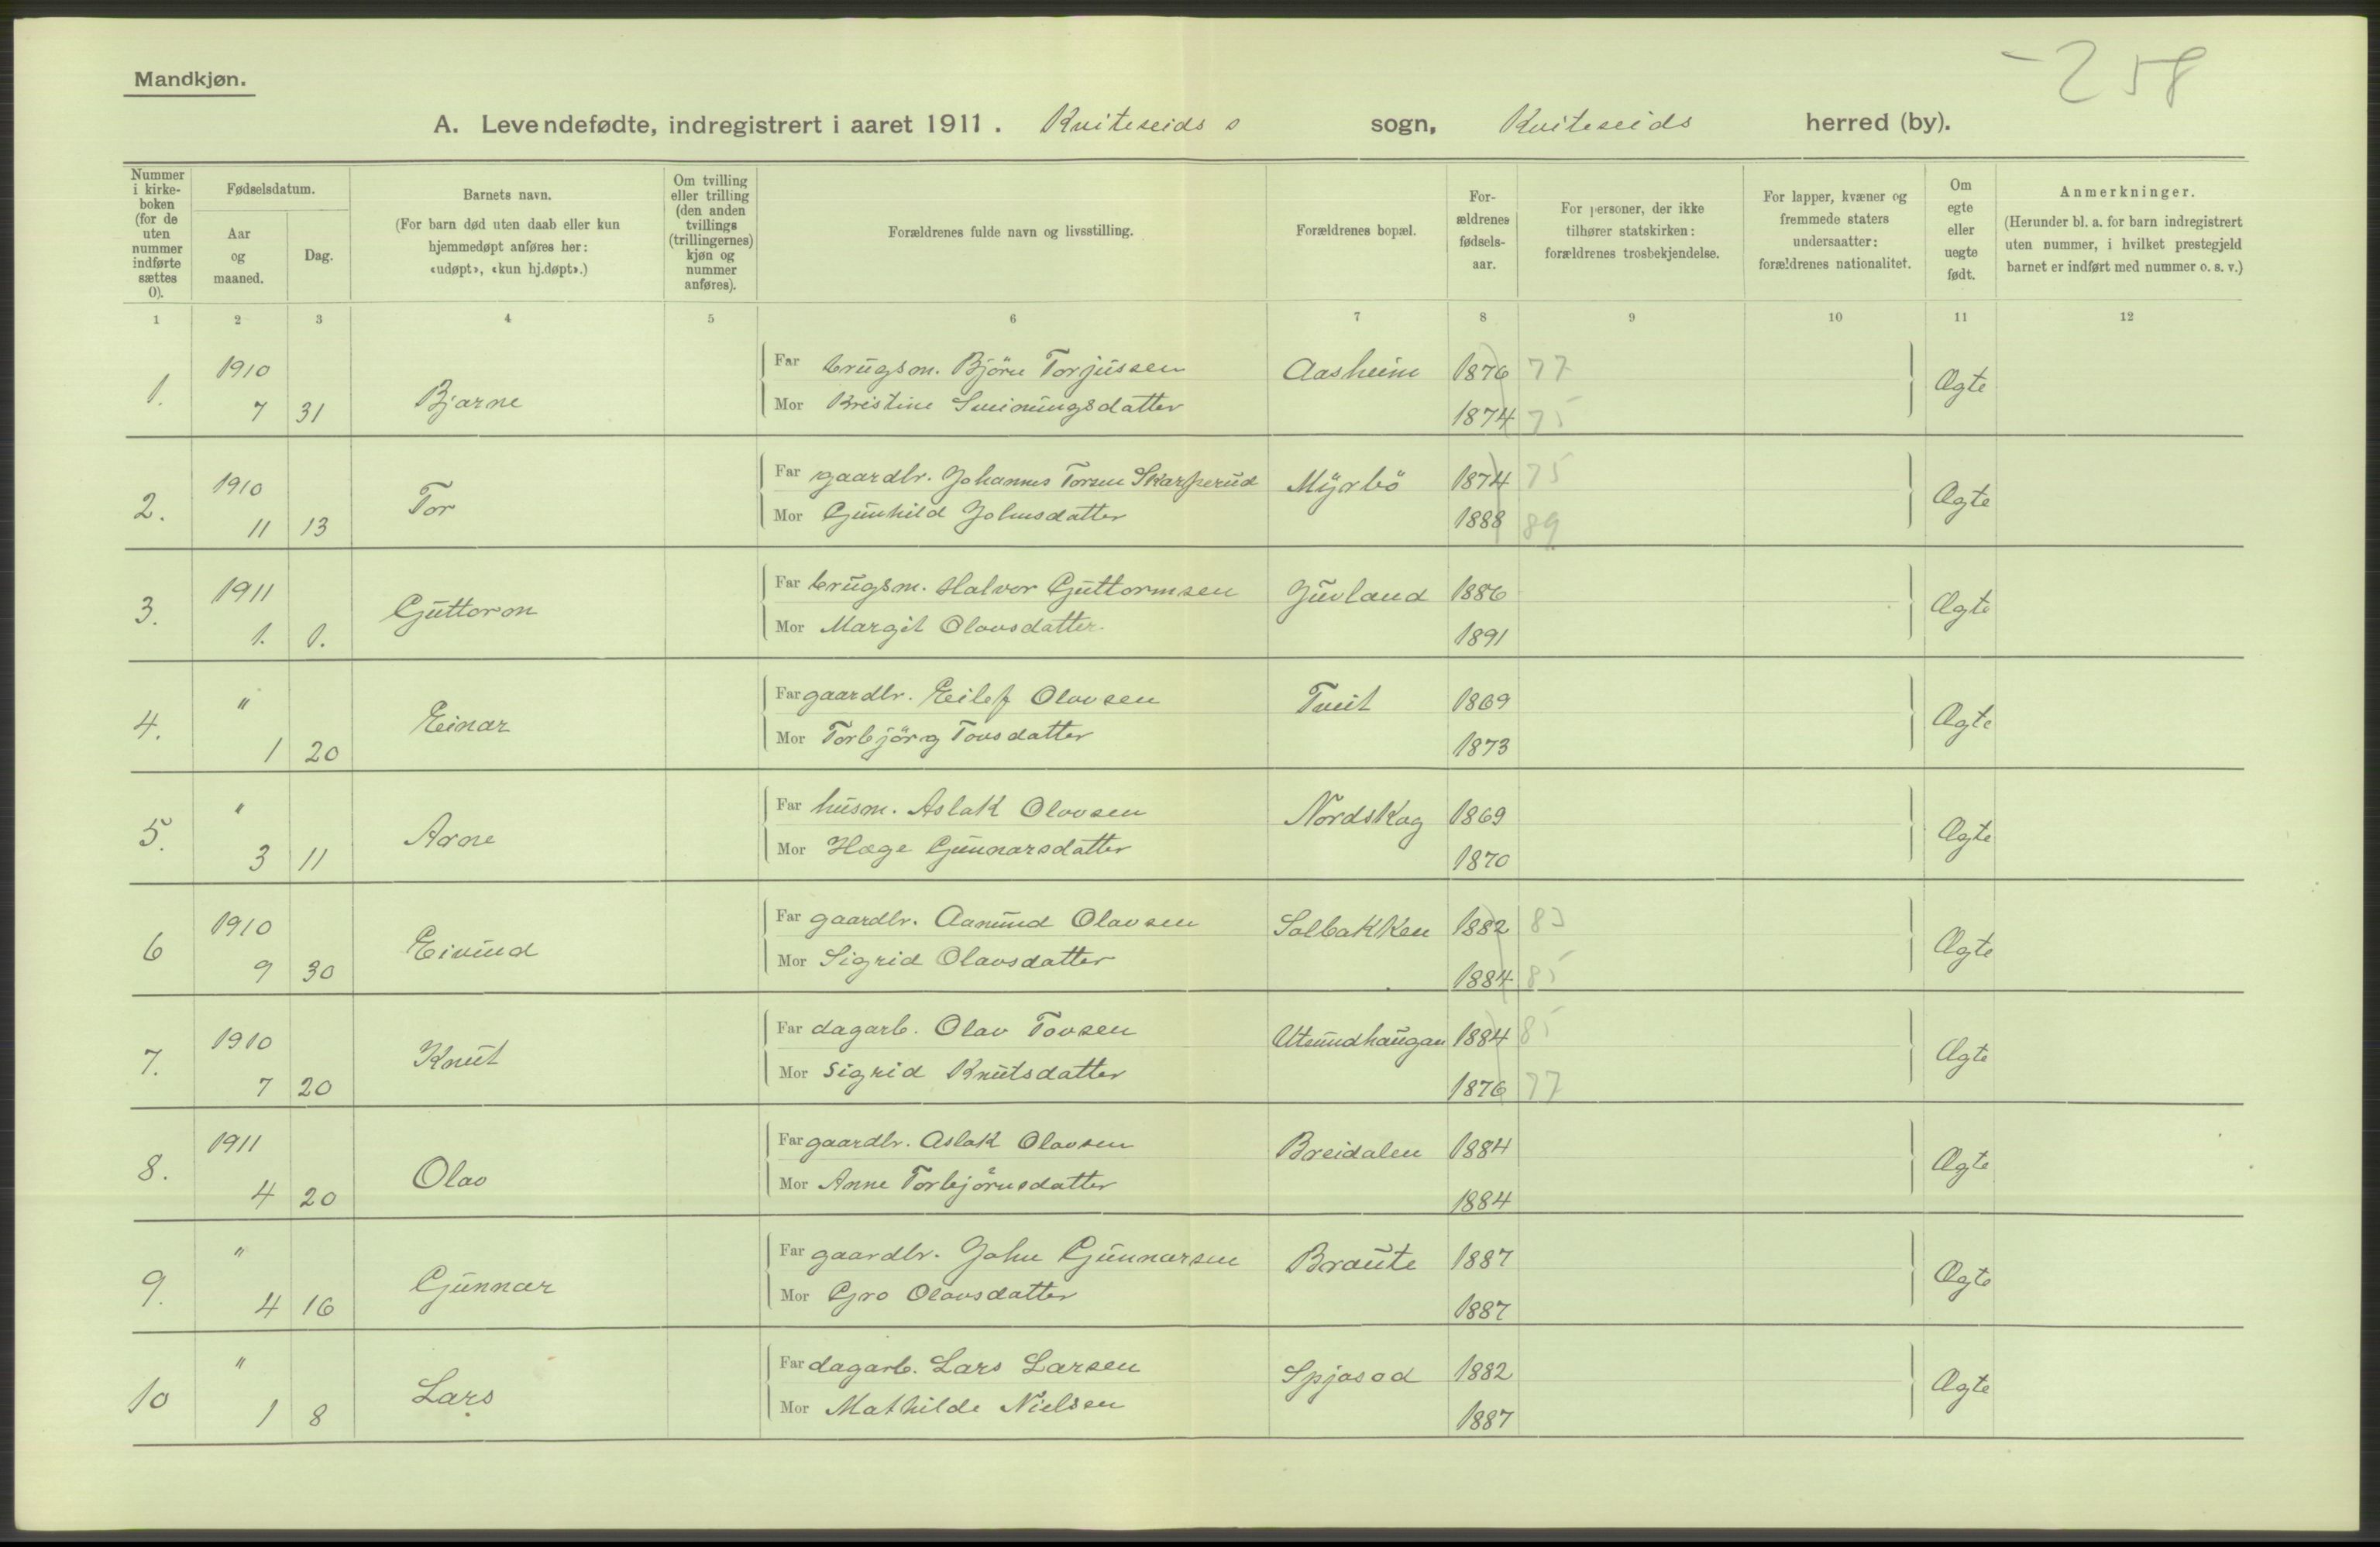 - 258
Mandkjøn.
A. Levendefødte, indregistrert i aaret 1911. Kviteseids s sogn, Kviteseids herred (by).
Nummer i kirkeboken (for de uten nummer indførte sættes 0).
Fødselsdatum.
Aar og maaned.
Dag.
Barnets navn.
(For barn død uten daab eller kun hjemmedøpt anføres her: «udøpt», «kun hj.døpt».)
Om tvilling eller trilling (den anden tvillings (trillingernes) kjøn og nummer anføres).
Forældrenes fulde navn og livsstilling.
Forældrenes bopæl.
Forældrenes fødselsaar.
For personer, der ikke tilhører statskirken: forældrenes trosbekjendelse.
For lapper, kvæner og fremmede staters undersaatter: forældrenes nationalitet.
Om egte eller uegte født.
Anmerkninger.
(Herunder bl. a. for barn indregistrert uten nummer, i hvilket prestegjeld barnet er indført med nummer o. s. v.)
1 2 3 4 5 6 7 8 9 10 11 12
1. 1910 7 31 Bjarne Far brugsm. Björn Torjussen Aasheim 1876 77 Ægte
Mor Kristine Sveinungsdatter 1874 75
2. 1910 11 13 Tor Far gaardbr. Johannes Torsen Skarperud Myrbö 1874 75 Ægte
Mor Gunhild Johnsdatter 1888 89
3. 1911 1. 1. Guttorm Far brugsm. Halvor Guttormsen Juvland 1886 Ægte
Mor Margit Olavsdatter. 1891
4. " 1 20 Einar Far gaardbr. Eilef Olavsen Tveit 1869 Ægte
Mor Torbjörg Tovsdatter 1873
5. " 3 11 Arne Far husm. Aslak Olavsen Nordskog 1869 Ægte
Mor Hæge Gunnarsdatter 1870
6 1910 9 30 Eivind Far gaardbr. Aanund Olavsen Solbakken 1882 83 Ægte
Mor Sigrid Olavsdatter 1884 85
7. 1910 7 20 Knut Far dagarb. Olav Tovsen 1884 85 Ægte
Mor Sigrid Knutsdatter 1876 77
8. 1911 4 20 Olav Far gaardbr. Aslak Olavsen Breidalen 1884 Ægte
Mor Anne Torbjörnsdatter 1884
9. " 4 16 Gunnar Far gaardbr. John Gunnarsen Braute 1887 Ægte
Mor Gro Olavsdatter 1887
10 " 1 8 Lars Far dagarb. Lars Larsen Spjosod 1882 Ægte
Mor Mathilde Nielsen 1887